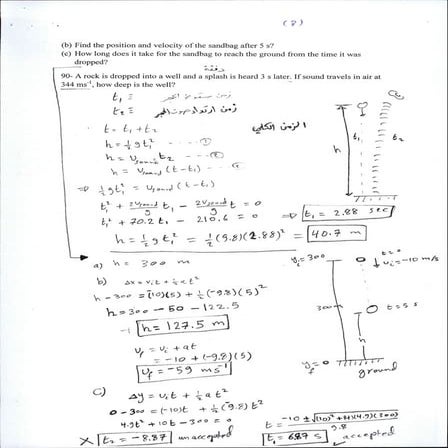 (8)
(b) Find the position and velocity of the sandbag after 5 s?
(c) How long does it take for the sandbag to reach the ground from the time it was
dropped?
90- A rock is dropped into a well and a splash is heard 3 s later. If sound travels in air at
344 ms⁻¹, how deep is the well?
t₁ ≡
t₂ ≡
t = t₁ + t₂ الزمن الكلي
h = ½ g t₁² ---- ①
h = v_sound t₂ ---- ②
h = v_sound (t - t₁)
⇒ ½ g t₁² = v_sound (t - t₁)
t₁² + 2v_sound/g t₁ - 2v_sound/g t = 0
t₁² + 70.2 t₁ - 210.6 = 0 ⇒ t₁ = 2.88 sec
h = ½ g t₁² = ½ (9.8)(2.88)² = 40.7 m
h t₁ t₂
a) h = 300 m
b) Δx = v_i t + ½ a t²
h - 300 = (-10)(5) + ½ (-9.8)(5)²
h = 300 - 50 - 122.5
h = 127.5 m
v_f = v_i + at
= -10 + (-9.8)(5)
v_f = -59 ms⁻¹
y_i = 300 t = 0 v_i = -10 m/s
300 t = 5 s
h
y_f = 0 ground
c) Δy = v_i t + ½ a t²
0 - 300 = (-10)t + ½ (-9.8) t²
4.9t² + 10t - 300 = 0
X t₂ = -8.87 unaccepted
t = -10 ± √(10)² + 4(4.9)(300) / 9.8
t₁ = 6.87 s accepted